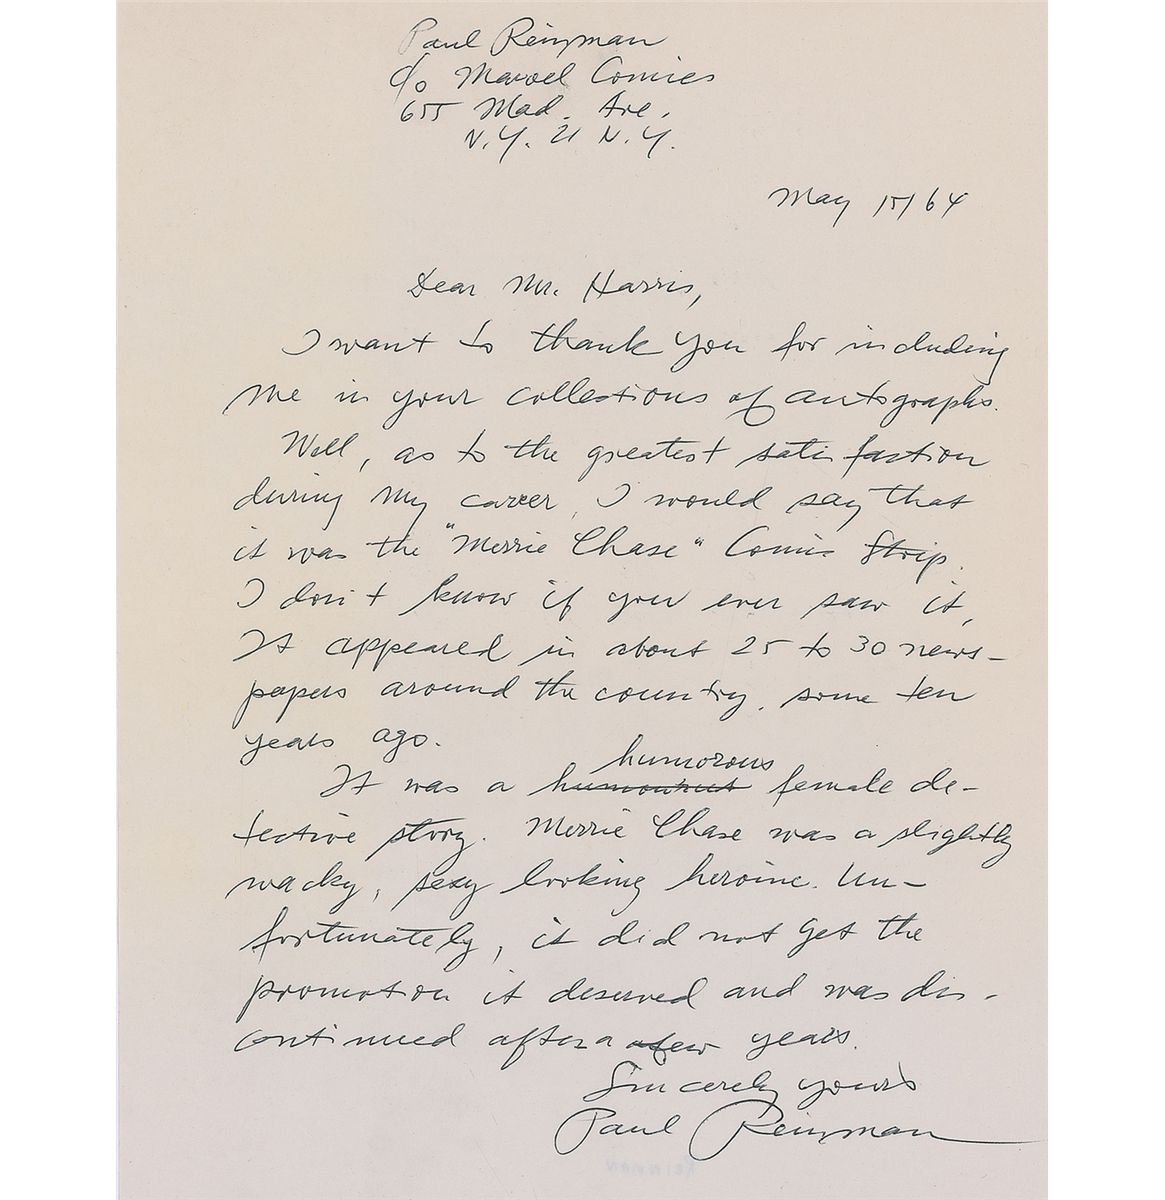 Paul Reinman
c/o Marvel Comics
655 Mad. Ave.
N.Y. 21 N.Y.
May 15/64
Dear Mr. Harris,
I want to thank you for including
me in your collections of autographs.
Well, as to the greatest satisfaction
during my career, I would say that
it was the "Merrie Chase" Comic Strip.
I don't know if you ever saw it,
It appeared in about 25 to 30 news-
papers around the country, some ten
years ago.
humorous
It was a female de-
tective story. Merrie Chase was a slightly
wacky, sexy looking heroine. Un-
fortunately, it did not get the
promotion it deserved and was dis-
continued after a few years.
Sincerely yours
Paul Reinman
REINMAN